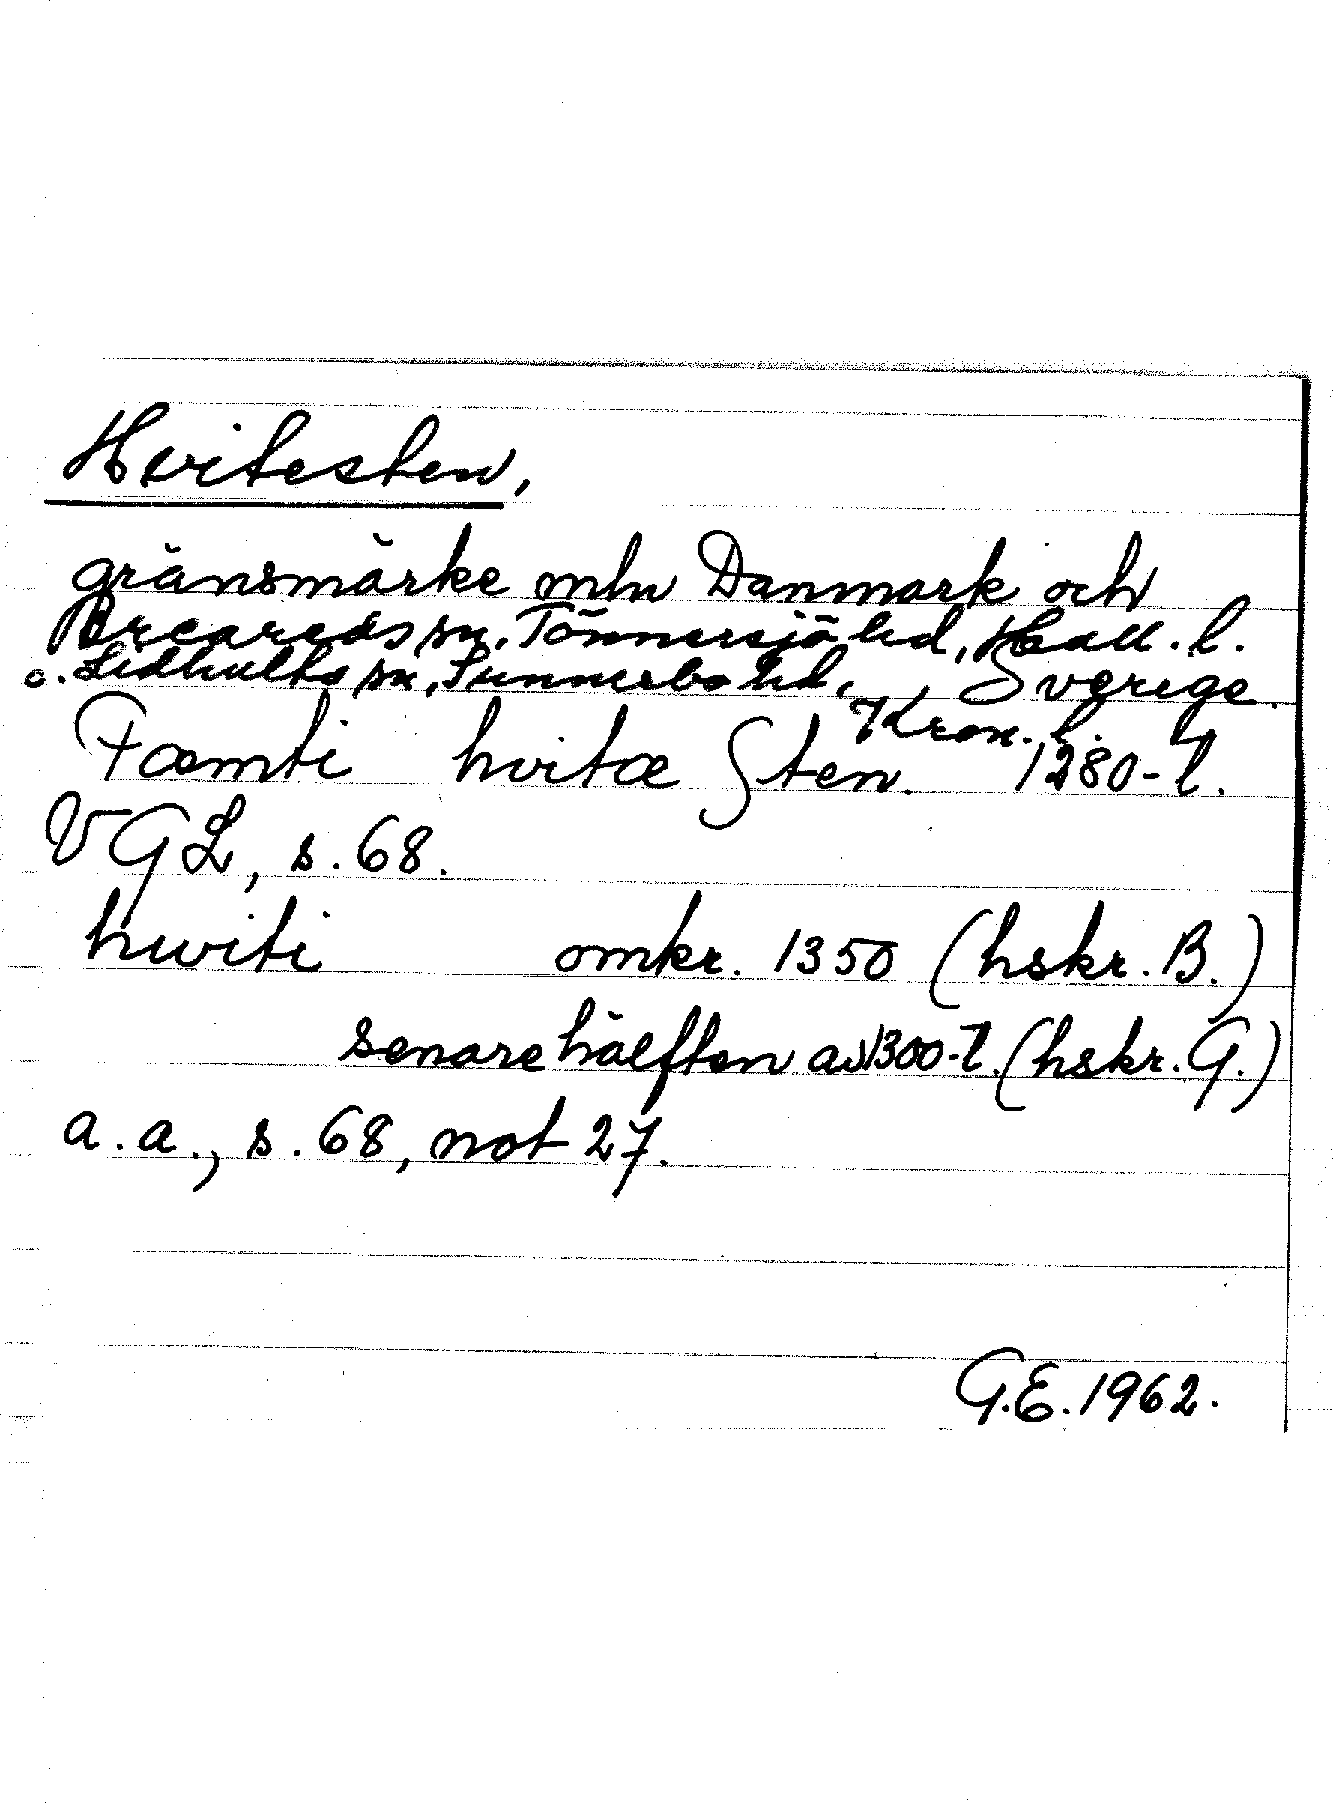 Hvitesten,
gränsmärke mln Danmark och
Breareds sn, Tönnersjö hd, Hall. l.
o. Lidhults sn, Sunnerbo hd, Sverige.
Kron. l.
Fæmti hvitæ Sten. 1280-t.
VGL, s. 68.
hwiti omkr. 1350 (hskr. B.)
senare hälften av 1300-t. (hskr. G.)
a. a., s. 68, not 27.
G.E. 1962.